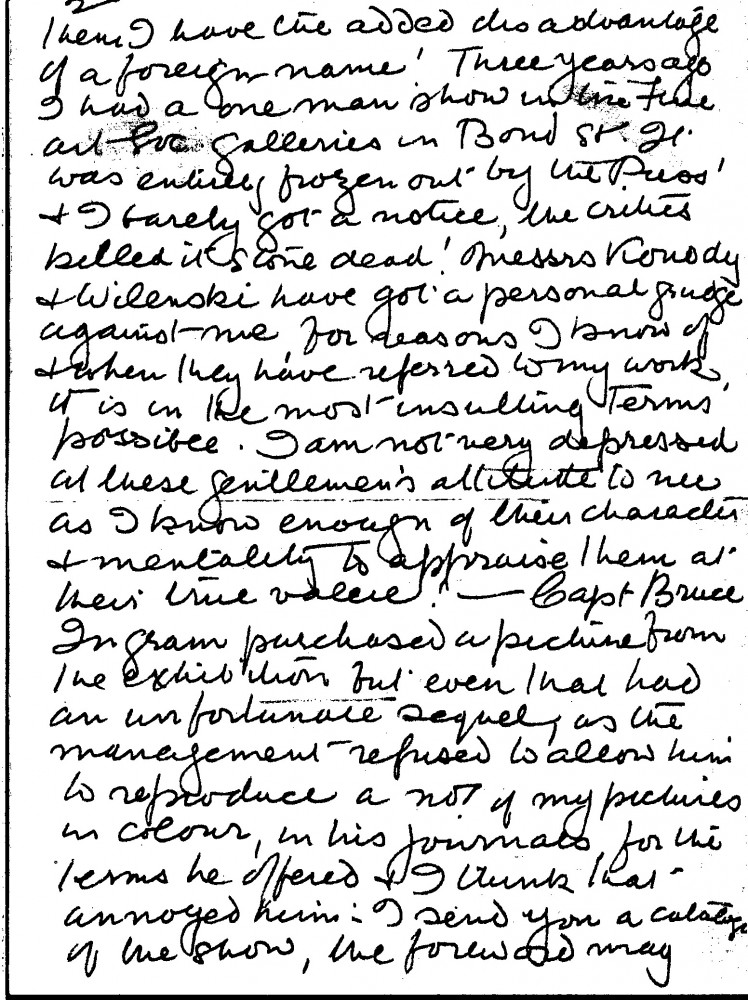 2
them I have the added disadvantage
of a foreign name! Three years ago
I had a one man show in the Fine
art Soc galleries in Bond St. It
was entirely frozen out by the Press!
& I barely got a notice, the critics
killed it stone dead! Messrs Konody
& Wilenski have got a personal grudge
against me for reasons I know of
& when they have referred to my work,
it is in the most insulting terms
possible. I am not very depressed
at these gentlemen's attitude to me
as I know enough of their character
& mentality to appraise them at
their true value! — Capt Bruce
Ingram purchased a picture from
the exhibition but even that had
an unfortunate sequel, as the
management refused to allow him
to reproduce a no of my pictures
in colour, in his journals, for the
terms he offered & I think that
annoyed him: I send you a catalogue
of the show, the foreword may